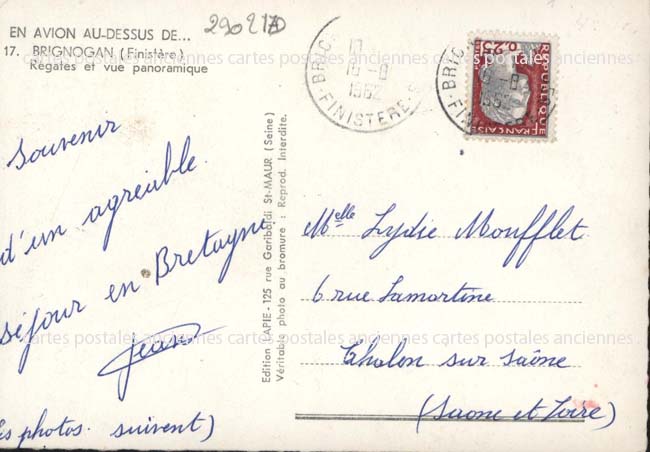 EN AVION AU-DESSUS DE...
17. BRIGNOGAN (Finistère)
Régates et vue panoramique
290217
Souvenir
d'un agréable
séjour en Bretagne
Jean
(Les photos suivent)
Edition LAPIE - 125 rue Garibaldi St-MAUR (Seine)
Véritable photo au bromure : Reprod. Interdite.
16-8
1962
FINISTERE
0,25
REPUBLIQUE
FRANÇAISE
Melle Lydie Moufflet
6 rue Lamartine
Chalon sur Saône
(Saone et Loire)
cartes postales anciennes cartes postales anciennes cartes postales anciennes
cartes postales anciennes cartes postales anciennes cartes postales anciennes